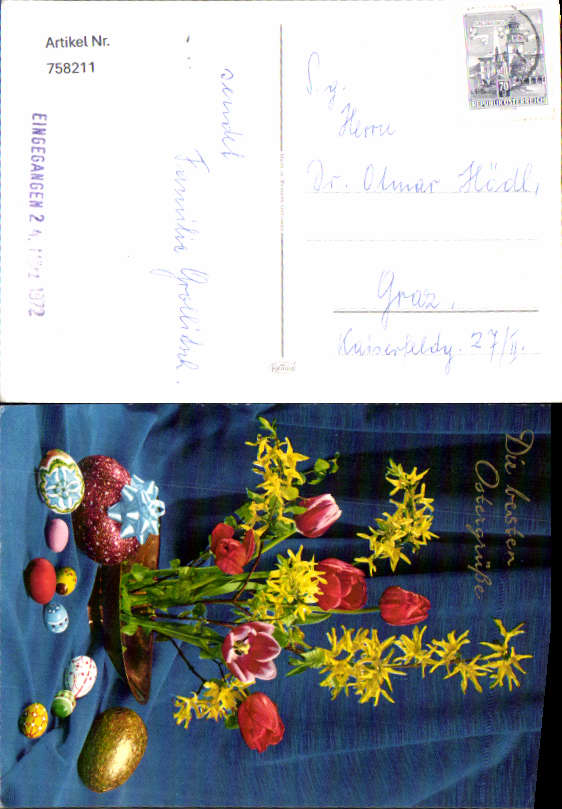 Artikel Nr.
758211
EINGEGANGEN 2 4. März 1972
sendet
Familie
REPUBLIK ÖSTERREICH
70
Herrn
Dr. Otmar Hödl,
Graz,
Kaiserfeldg. 27/II.
Die besten
Ostergrüße